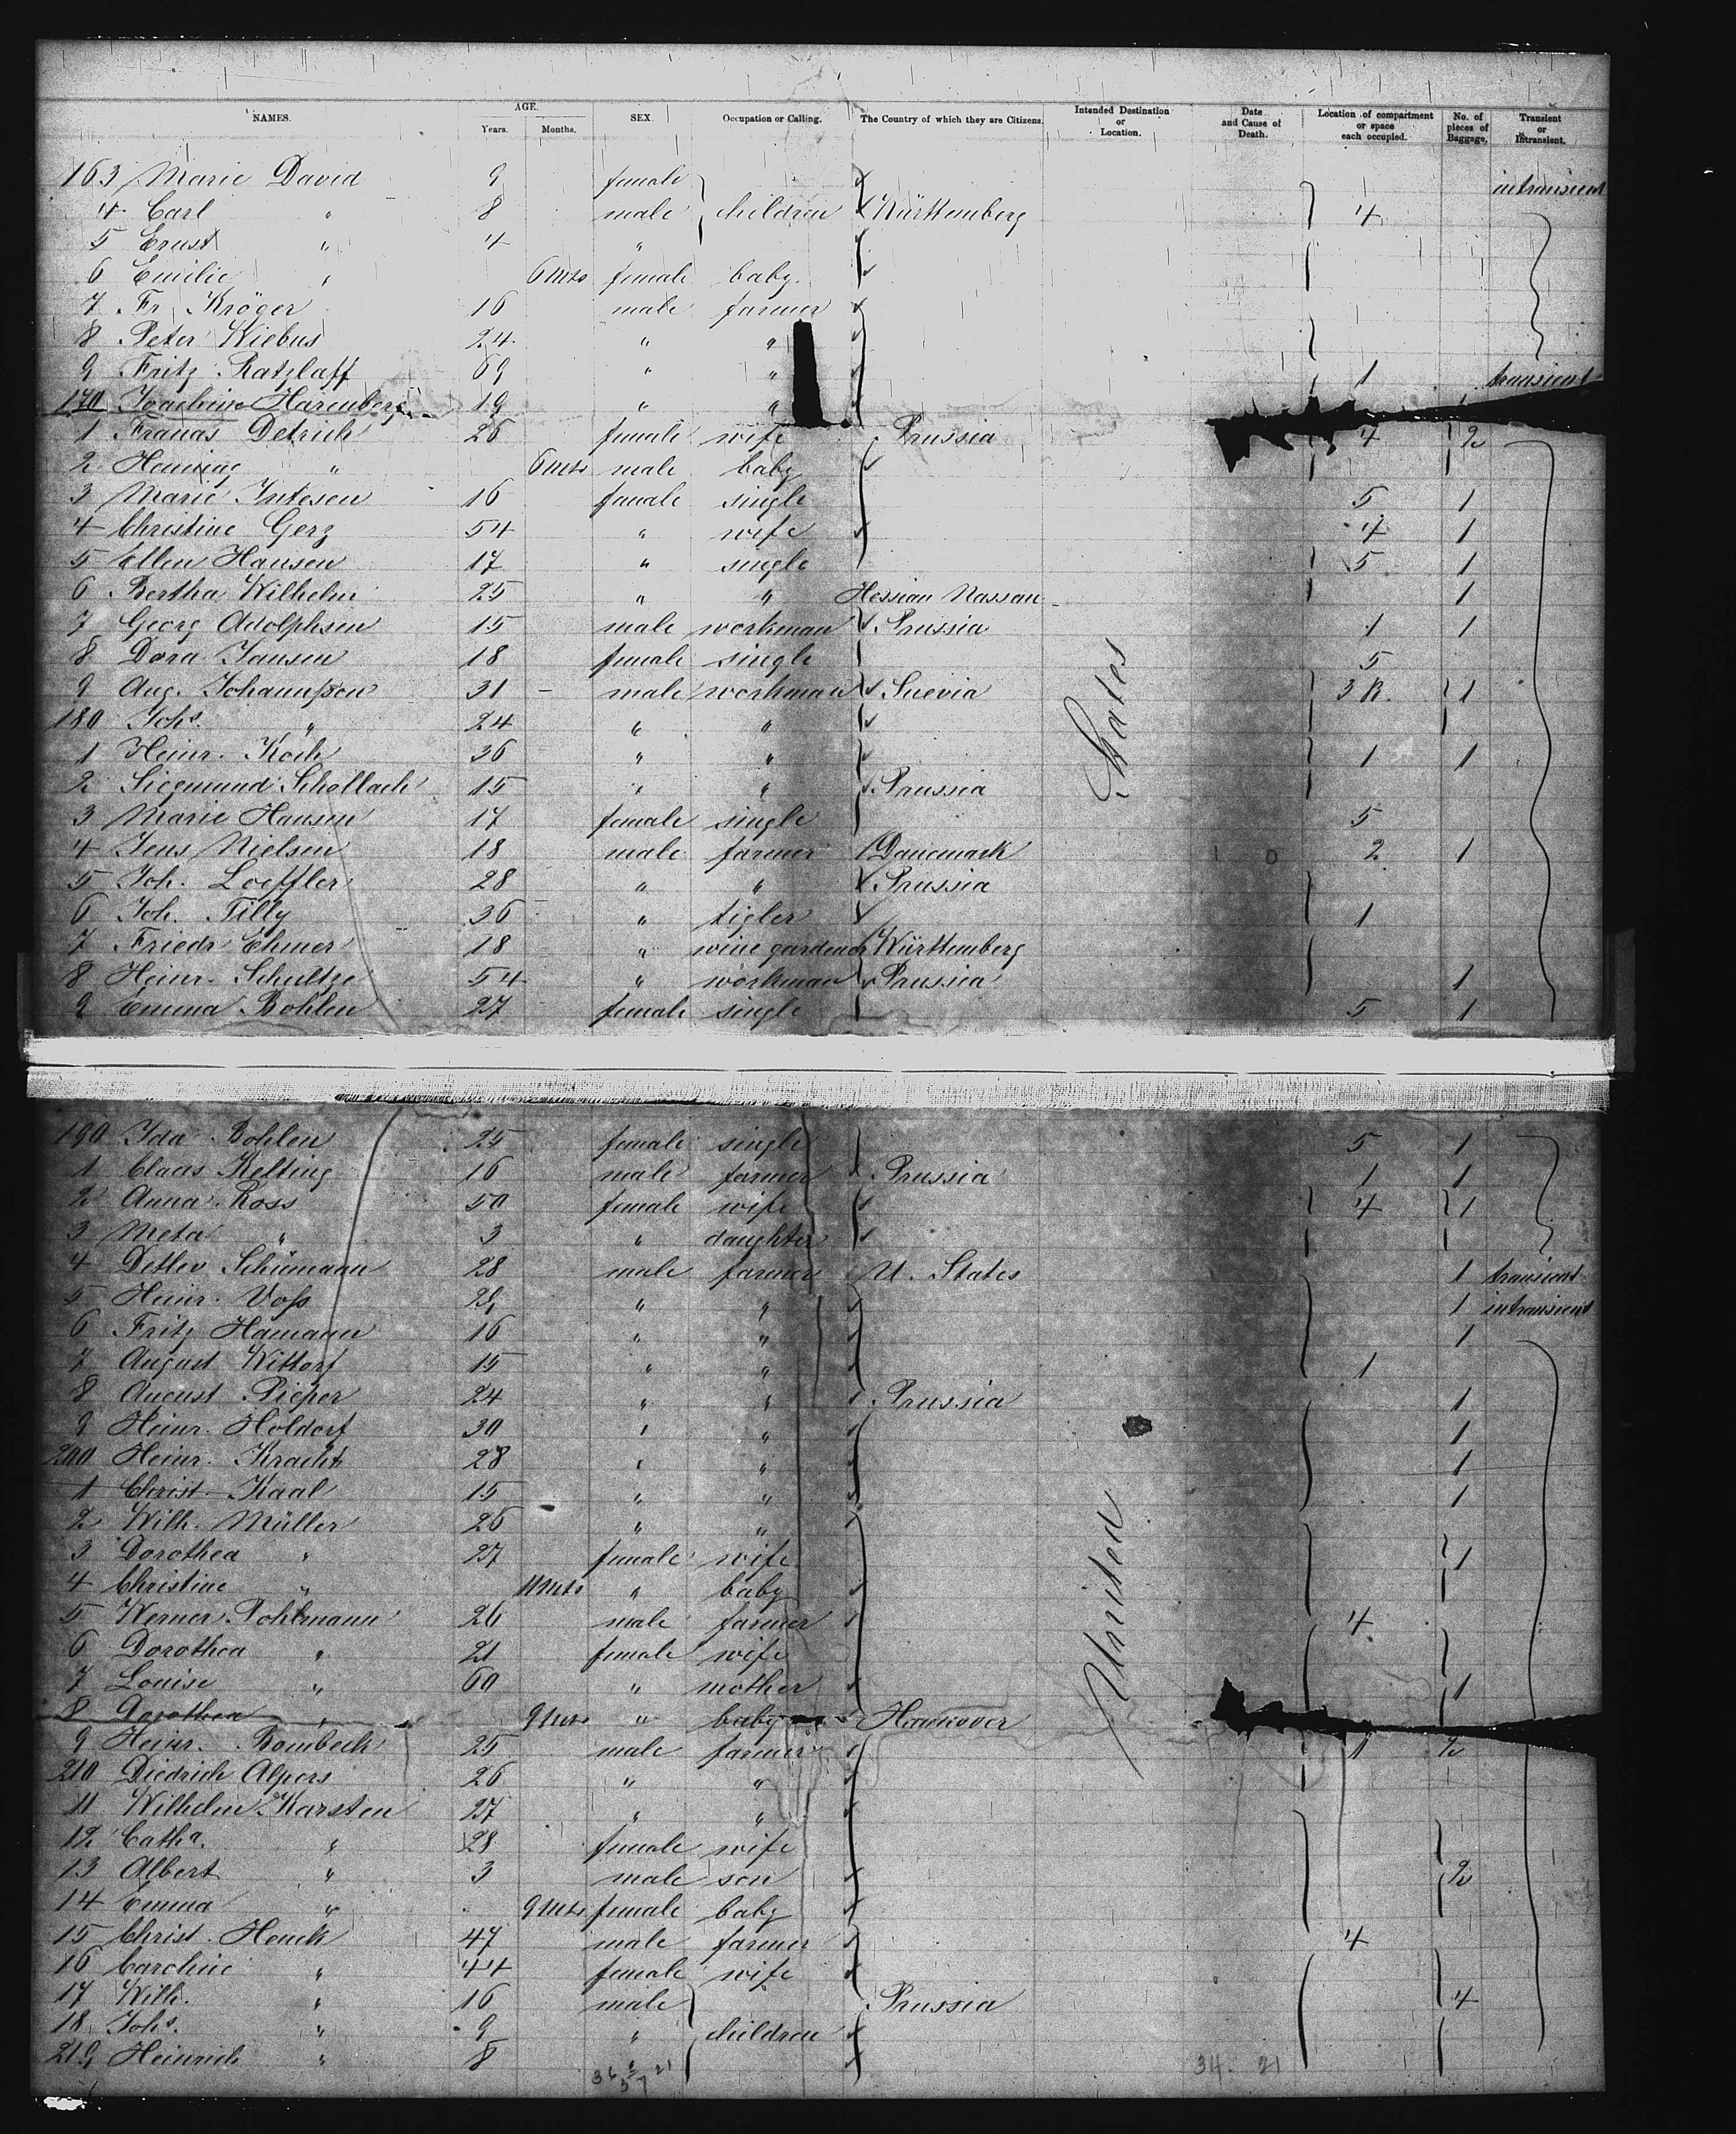 NAMES. AGE. Years. Months. SEX. Occupation or Calling. The Country of which they are Citizens. Intended Destination or Location. Date and Cause of Death. Location of compartment or space each occupied. No. of pieces of Baggage. Transient or Intransient.
163 Marie David 9 female intransient
4 Carl " 8 male children Württemberg 4
5 Ernst " 4 "
6 Emilie " 6 mts female baby
7 Fr. Kröger 16 male farmer
8 Peter Wiebus 24 " "
9 Fritz Ratzlaff 69 " " 1 transient
170 Joachim Harenberg 19 " "
1 Detrich 26 female wife Prussia 4 2
2 Henning " 6 mts male baby
3 Marie 16 female single 5 1
4 Christine Gerz 54 " wife 4 1
5 Ellen Hansen 17 " single 5 1
6 Bertha Wilhelm 25 " " Hessian Nassau 1
7 Georg Adolphsen 15 male workman Prussia 1 1
8 Dora Jansen 18 female single 5
9 Aug. Johannsson 31 – male workman Suevia 3 R. 1
180 Johs. " 24 " "
1 Heinr. Koch 36 " " 1 1
2 Siegmund Schollach 15 " " Prussia
3 Marie Hansen 17 female single 5
4 Jens Nielsen 18 male farmer Danemark 1 0 2 1
5 Joh. Loeffler 28 " " Prussia
6 Joh. Tilly 36 " tigler 1
7 Friedr Ehmer 18 " wine gardener Württemberg
8 Heinr. Schultze 54 " workman Prussia 1
9 Emma Bohlen 27 female single 5 1
States
190 Ida Bohlen 25 female single 5 1
1 Claas Kelting 16 male farmer Prussia 1 1
2 Anna Ross 50 female wife 4 1
3 Meta " 3 " daughter
4 Detlev Schümann 28 male farmer U. States 1 transient
5 Heinr. Voss 29 " " 1 intransient
6 Fritz Hamann 16 " " 1
7 August Wittorf 15 " " 1
8 August Pieper 24 " " Prussia 1
9 Heinr. Holdorf 30 " " 1
200 Heinr. Kracht 28 " " 1
1 Christ. Kaal 15 " " 1
2 Wilh. Müller 26 " "
3 Dorothea " 27 female wife 1
4 Christine " 11 mts " baby
5 Werner Pohlmann 26 male farmer 4
6 Dorothea " 21 female wife
7 Louise " 60 " mother 1
8 Dorothea " 9 mts " baby Hannover
9 Heinr. Rombeck 25 male farmer 1 2
210 Diedrich Alpers 26 " "
11 Wilhelm Karsten 27 " "
12 Catha. " 28 female wife
13 Albert " 3 male son 2
14 Emma " 9 mts female baby
15 Christ. Henck 47 male farmer 4
16 Caroline " 44 female wife
17 Wilh. " 16 male Prussia 4
18 Johs. " 9 " children
219 Heinrich " 8
United
34. 21